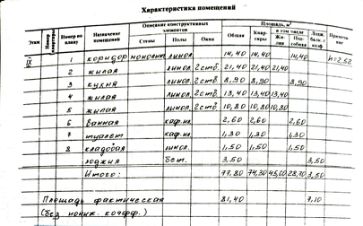 Характеристика помещений
Этаж Номер по плану Назначение помещений Описание конструктивных элементов Площадь, м²
Стены Полы Окна Общая в том числе
IX 1 коридор линол. 14,40 14,40 14,40 h=2.52
2 жилая линол. 2 ств. 21,40 21,40 21,40
3 кухня линол. 2 ств. 8,90 8,90 8,90
4 жилая линол. 2 ств. 13,40 13,40 13,40
5 жилая линол. 2 ств. 10,80 10,80 10,80
6 ванная каф.пл 2,60 2,60 2,60
7 туалет каф.пл 1,30 1,30 1,30
8 кладовая линол. 1,50 1,50 1,50
лоджия бет. 3,50 3,50
Итого: 77,80 74,30 45,60 28,70 3,50
Площадь фактическая 81,40 7,10
(без пониж. коэфф.)